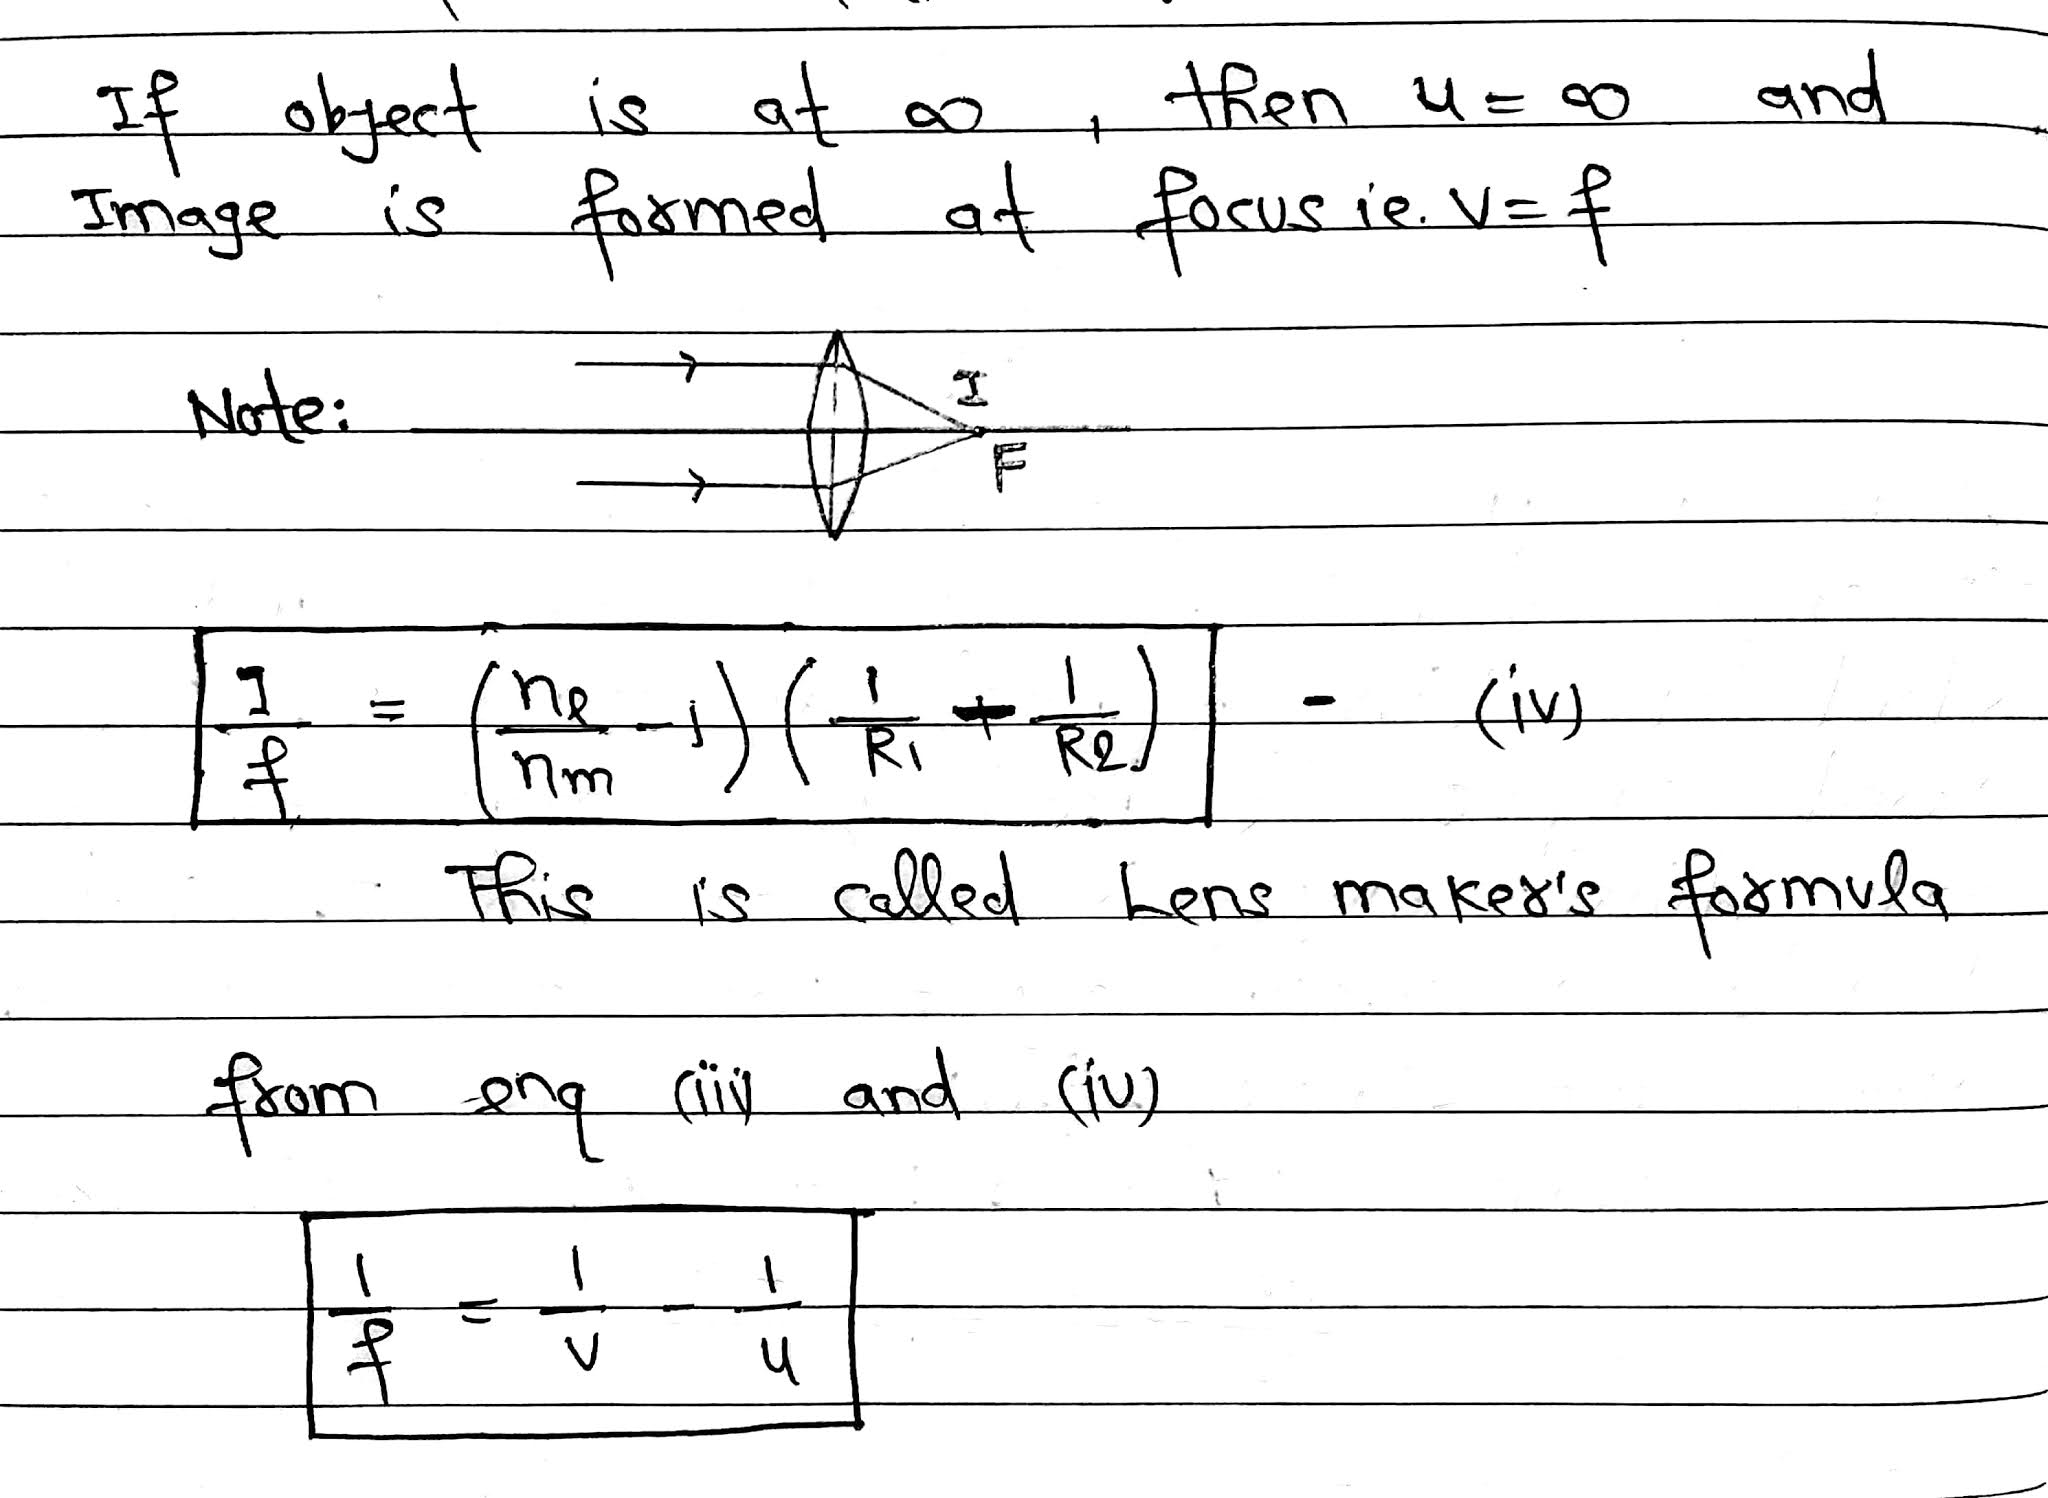 If object is at ∞, then u = ∞ and
Image is formed at focus ie. v = f
Note:
I
F
1/f = (nℓ/nm - 1) (1/R1 + 1/R2) - (iv)
This is called Lens maker's formula
from enq (iii) and (iv)
1/f = 1/v - 1/u